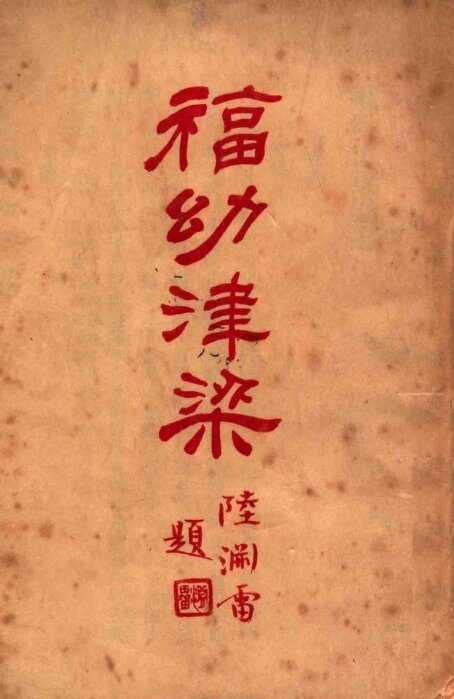 福幼津梁
陸渊雷
題